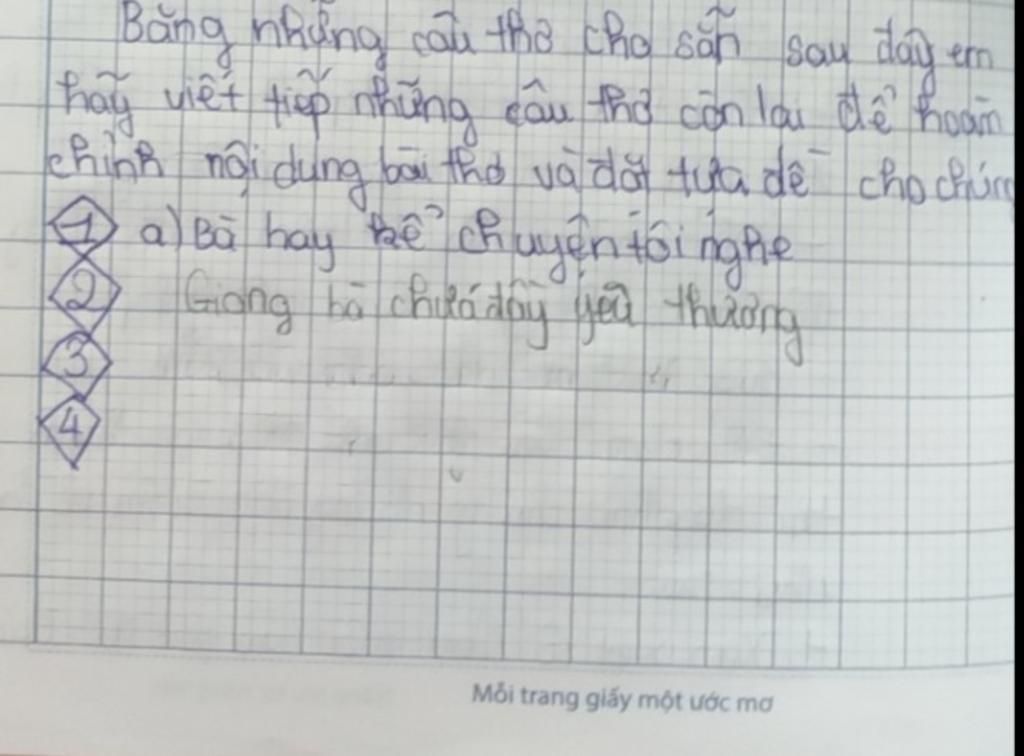 Bằng những câu thơ cho sẵn sau đây em
hãy viết tiếp những câu thơ còn lại để hoàn
chỉnh nội dung bài thơ và đặt tựa đề cho chúng
1 a) Bà hay kể chuyện tôi nghe
2 Giọng bà chứa đầy yêu thương
3
4
Mỗi trang giấy một ước mơ